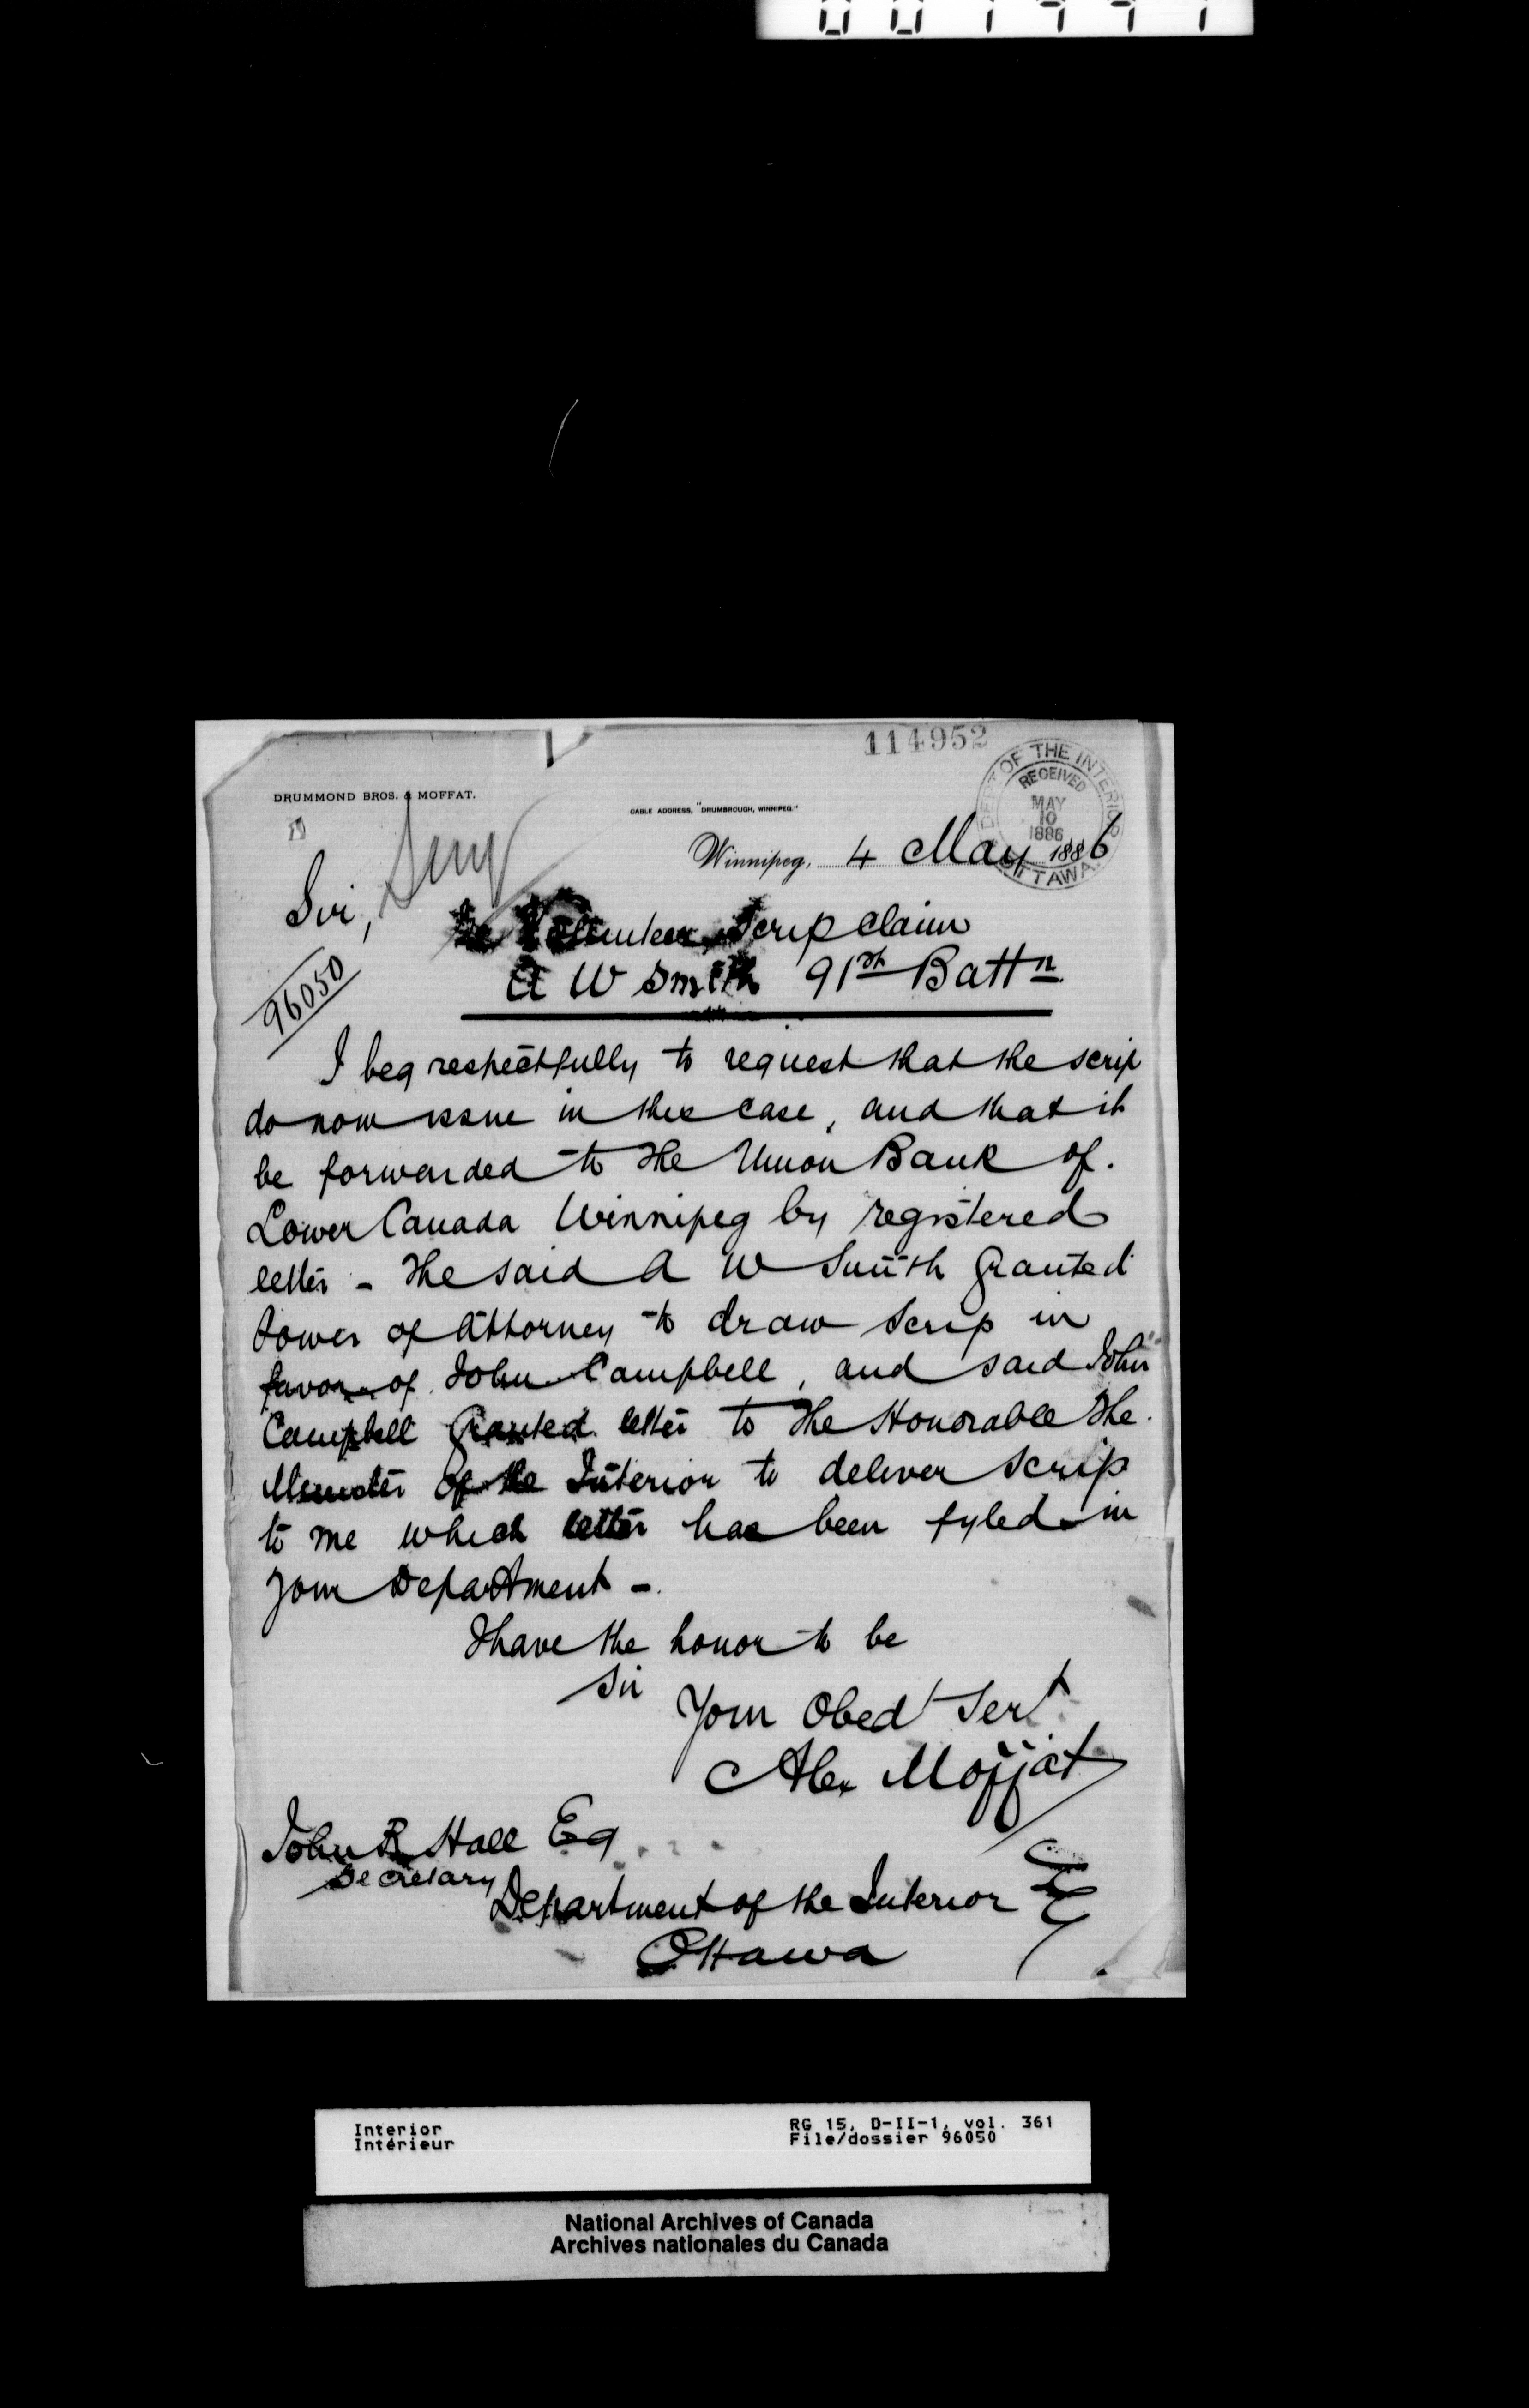 114952
DEPT OF THE INTERIOR
RECEIVED
MAY
10
1886
OTTAWA
DRUMMOND BROS. & MOFFAT.
CABLE ADDRESS, "DRUMBROUGH, WINNIPEG."
Winnipeg, 4 May 1886
Sir,
96050
Re Volunteer Scrip claim
A W Smith 91st Battn
I beg respectfully to request that the scrip
do now issue in this case, and that it
be forwarded to the Union Bank of.
Lower Canada Winnipeg by registered
letter - The said A W Smith Granted
Power of Attorney to draw scrip in
favor of John Campbell, and said John
Campbell Granted letter to the Honorable the.
Minister of the Interior to deliver scrip
to me which letter has been fyled in
your Department -.
I have the honor to be
Sir
Your Obed Sert
Alex Moffat
John R Hall Eq
Secretary
Department of the Interior
Ottawa
Interior
Intérieur
RG 15, D-II-1, vol. 361
File/dossier 96050
National Archives of Canada
Archives nationales du Canada